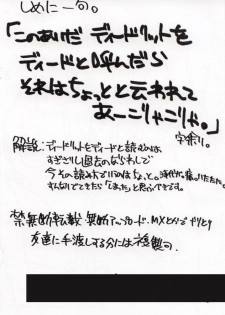 しめに一句。
「このあいだ ディードリットを
ディードと呼んだら
それはちょっとと云われて
あーごにゃごにゃ。」
字余り。
解説：ディードリットをディードと読むのは
すぎさりし過去のならわしで
今その読み方でいうのはちょっと。
すんなりでてきたら「しまった」と思う
禁無断転載・無断アップロード・MXとかでやりとり
友達に手渡しする分には複製可。